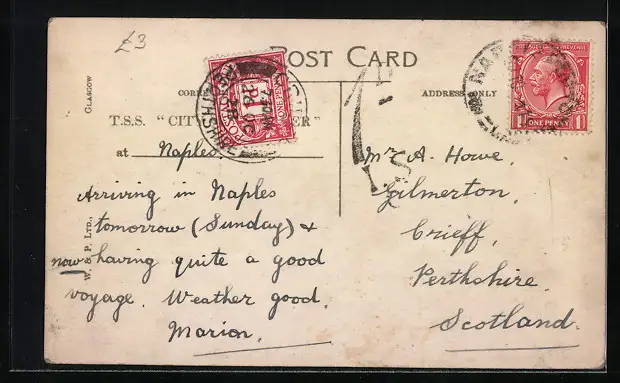 £3
POST CARD
GLASGOW
ADDRESS ONLY
T.S.S. "CIT ER"
at Naples
W. & P. LTD.,
Arriving in Naples
tomorrow (Sunday) &
now having quite a good
voyage. Weather good.
Marion.
Mr A. Howe,
Gilmerton,
Crieff,
Perthshire,
Scotland.
POSTAGE DUE
ONE PENNY
1D
POSTAGE REVENUE
1 ONE PENNY 1
1
I.S.